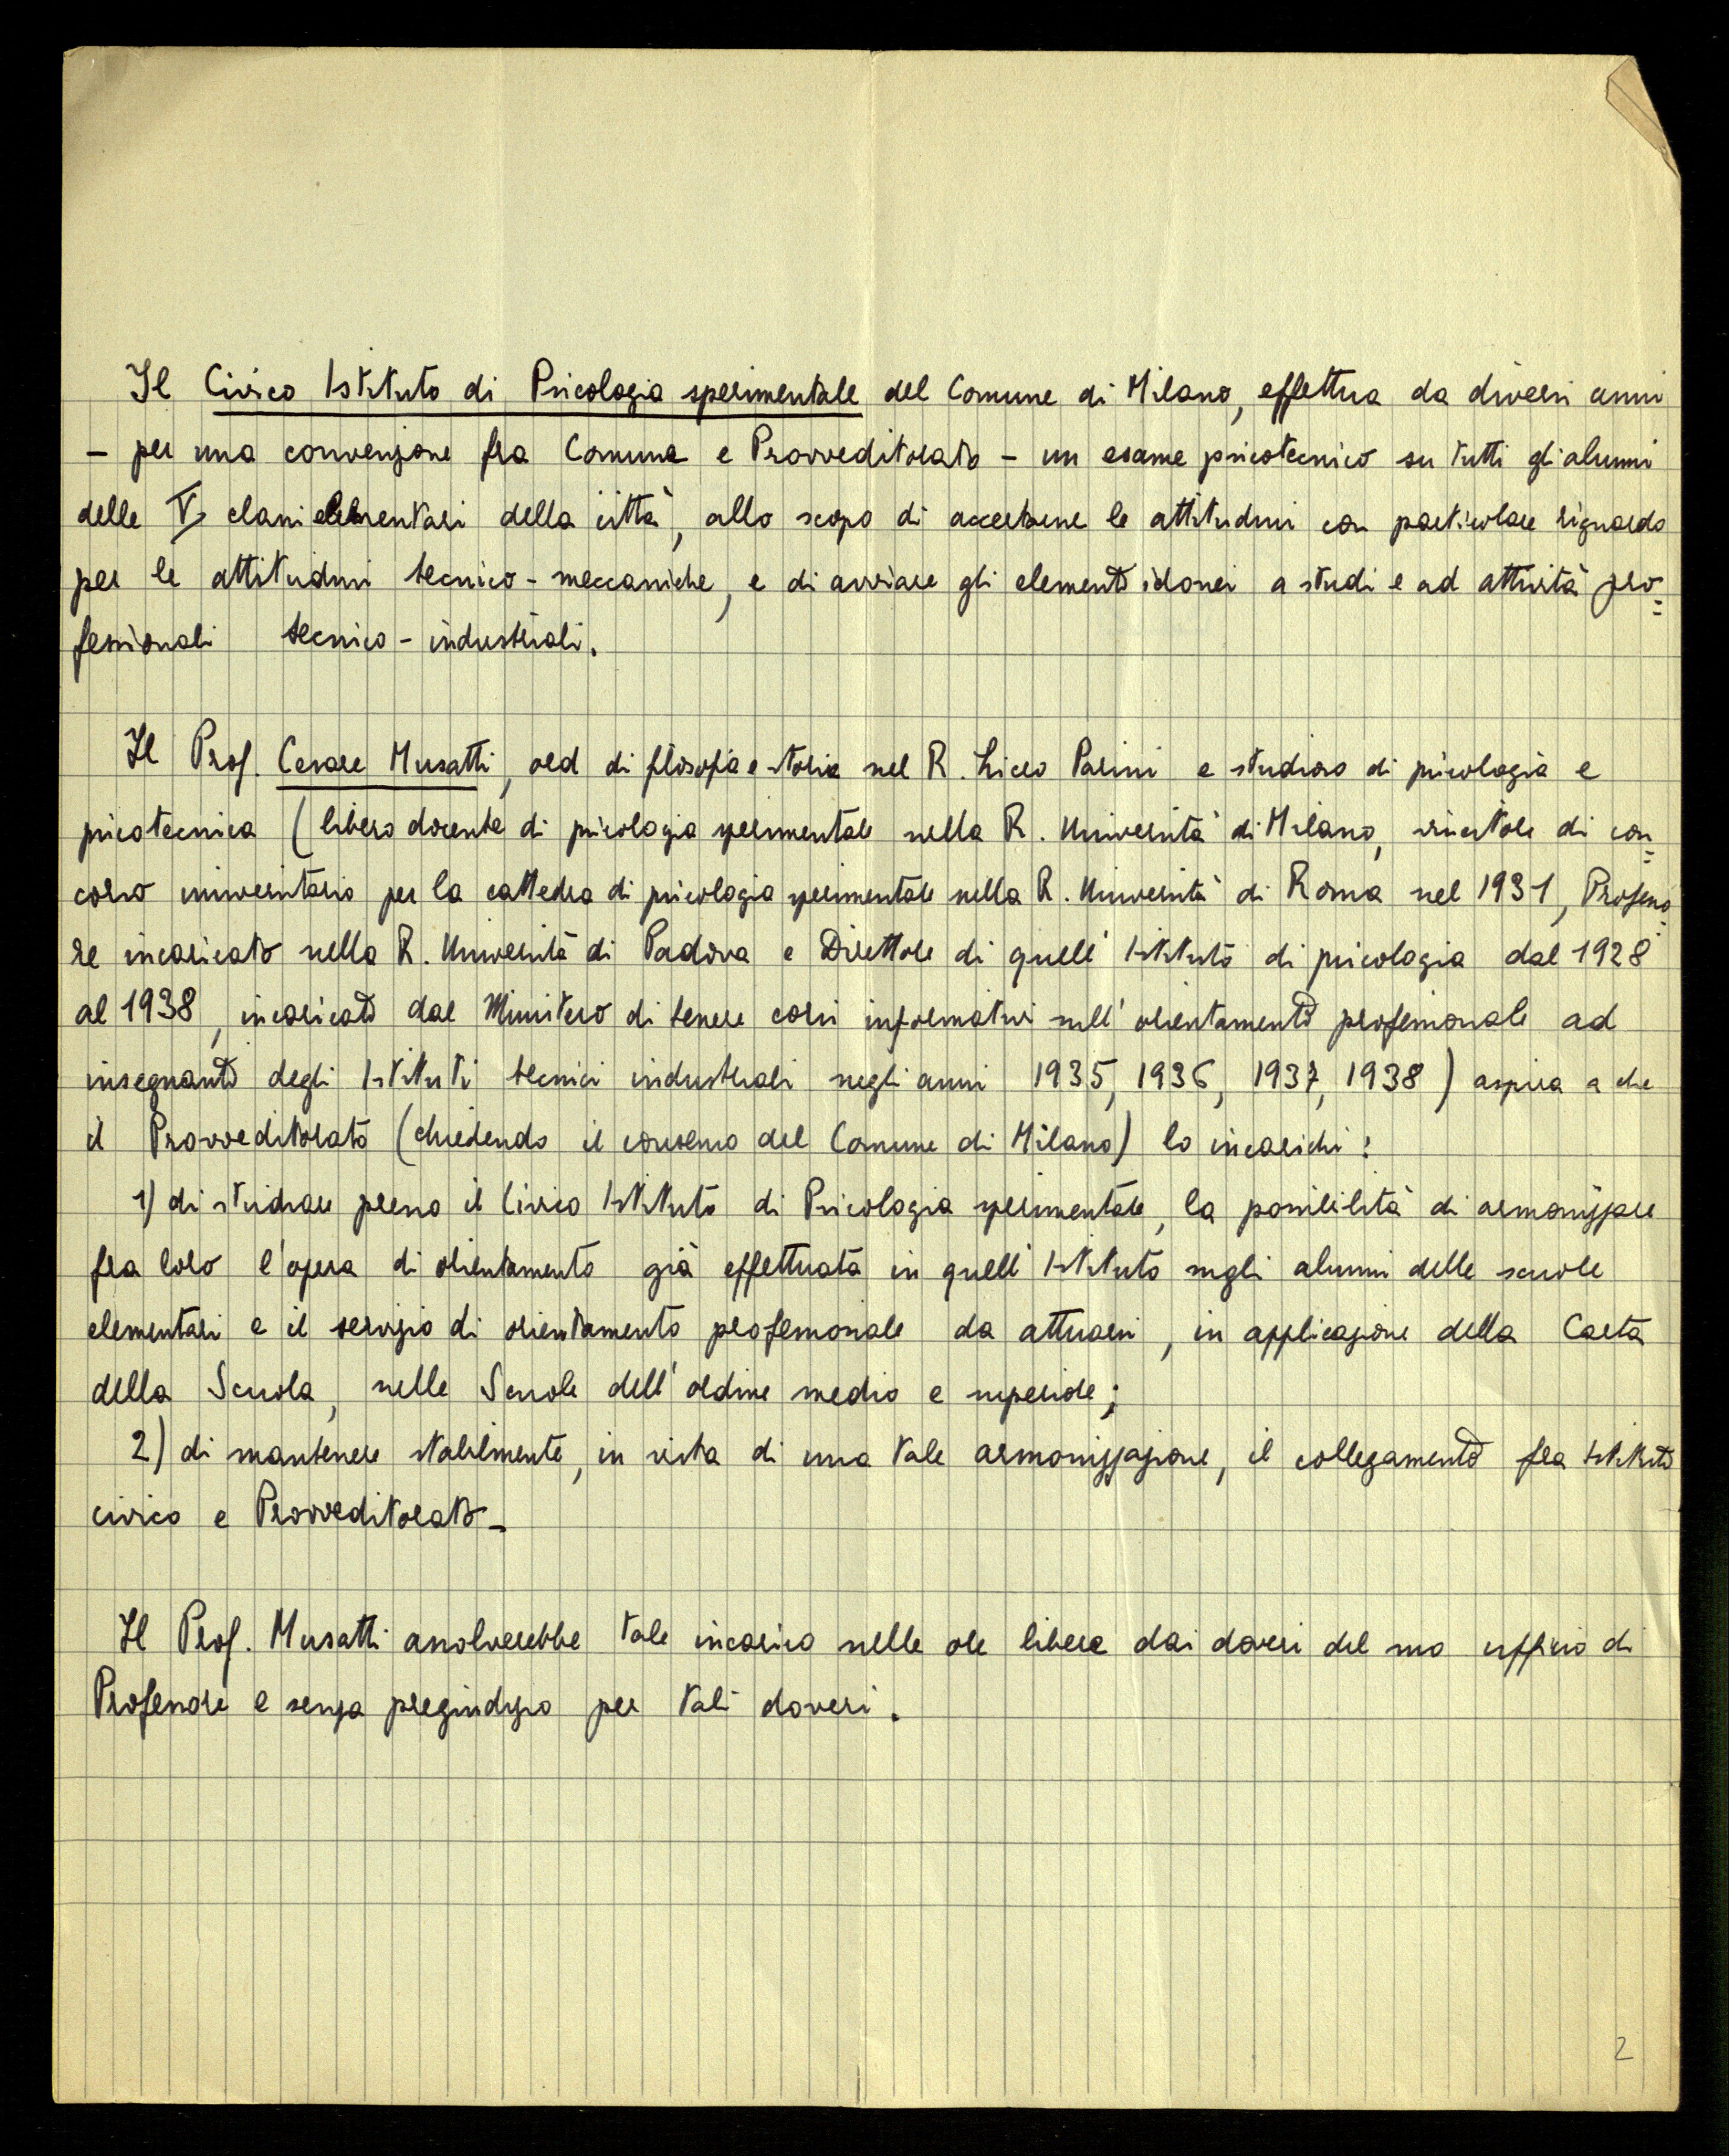 Il Civico Istituto di Psicologia sperimentale del Comune di Milano, effettua da diversi anni
- per una convenzione fra Comune e Provveditorato - un esame psicotecnico su tutti gli alunni
delle V classi elementari della città, allo scopo di accertarne le attitudini con particolare riguardo
per le attitudini tecnico-meccaniche, e di avviare gli elementi idonei a studi e ad attività pro=
fessionali tecnico-industriali.
Il Prof. Cesare Musatti, ord di filosofia e storia nel R. Liceo Parini e studioso di psicologia e
psicotecnica (libero docente di psicologia sperimentale nella R. Università di Milano, vincitore di con=
corso universitario per la cattedra di psicologia sperimentale nella R. Università di Roma nel 1931, Professo=
re incaricato nella R. Università di Padova e Direttore di quell'Istituto di psicologia dal 1928
al 1938, incaricato dal Ministero di tenere corsi informativi sull'orientamento professionale ad
insegnanti degli Istituti tecnici industriali negli anni 1935, 1936, 1937, 1938) aspira a che
il Provveditorato (chiedendo il consenso del Comune di Milano) lo incarichi:
1) di studiare presso il Civico Istituto di Psicologia sperimentale, la possibilità di armonizzare
fra loro l'opera di orientamento già effettuata in quell'Istituto sugli alunni delle scuole
elementari e il servizio di orientamento professionale da attuarsi, in applicazione della Carta
della Scuola, nelle Scuole dell'ordine medio e superiore;
2) di mantenere stabilmente, in vista di una tale armonizzazione, il collegamento fra Istituto
civico e Provveditorato-
Il Prof. Musatti assolverebbe tale incarico nelle ore libere dai doveri del suo ufficio di
Professore e senza pregiudizio per tali doveri.
2